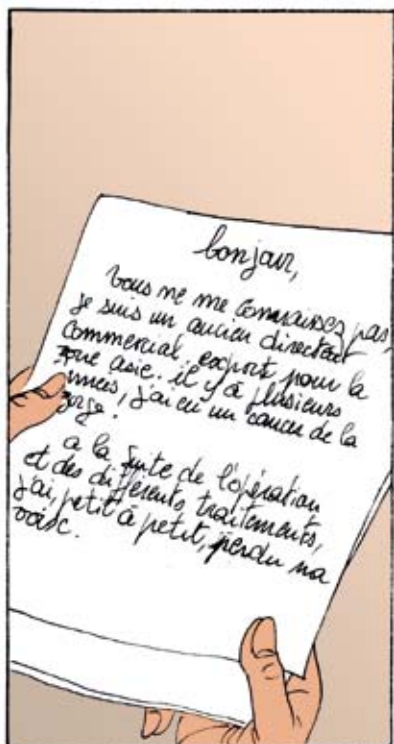 bonjour,
vous ne me connaissez pas,
je suis un ancien directeur
commercial export pour la
zone asie. il y a plusieurs
années, j'ai eu un cancer de la
gorge.
a la suite de l'opération
et des différents traitements,
j'ai, petit à petit, perdu ma
voix.